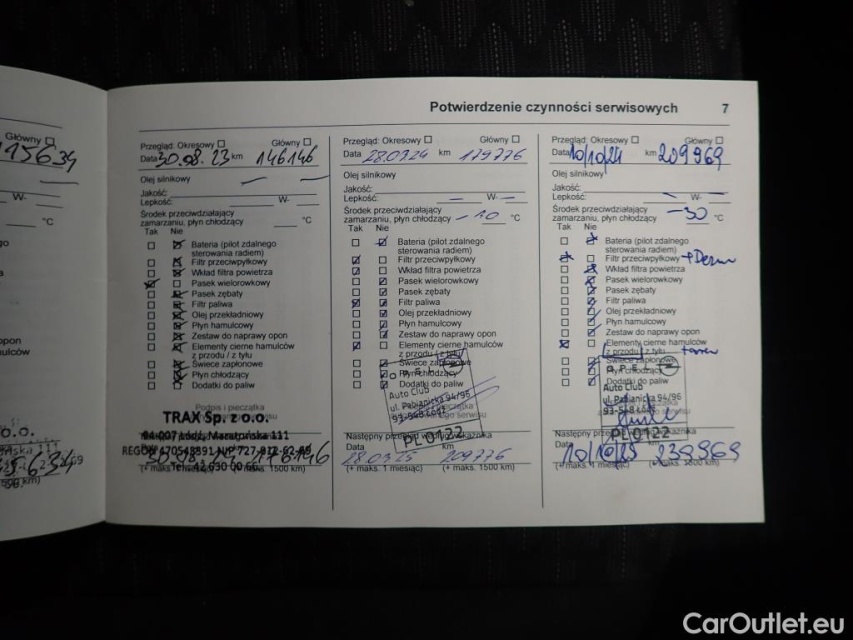 Potwierdzenie czynności serwisowych 7
Główny
15634
W-
°C
Przegląd: Okresowy Główny
Data 30.08.23 km 146146
Olej silnikowy
Jakość:
Lepkość: W-
Środek przeciwdziałający
zamarzaniu, płyn chłodzący °C
Tak Nie
Bateria (pilot zdalnego
sterowania radiem)
Filtr przeciwpyłkowy
Wkład filtra powietrza
Pasek wielorowkowy
Pasek zębaty
Filtr paliwa
Olej przekładniowy
Płyn hamulcowy
Zestaw do naprawy opon
Elementy cierne hamulców
z przodu / z tyłu
Świece zapłonowe
Płyn chłodzący
Dodatki do paliw
Podpis i pieczątka
TRAX Sp. z o.o.
94-007 Łódź, Maratońska 111
Tel. 42 630 00 66
30.08.24 176146
(+ maks. 1 miesiąc) (+ maks. 1500 km)
Przegląd: Okresowy Główny
Data 28.03.24 km 179776
Olej silnikowy
Jakość:
Lepkość: W-
Środek przeciwdziałający
zamarzaniu, płyn chłodzący °C
Tak Nie
Bateria (pilot zdalnego
sterowania radiem)
Filtr przeciwpyłkowy
Wkład filtra powietrza
Pasek wielorowkowy
Pasek zębaty
Filtr paliwa
Olej przekładniowy
Płyn hamulcowy
Zestaw do naprawy opon
Elementy cierne hamulców
z przodu / z tyłu
Świece zapłonowe
Płyn chłodzący
Dodatki do paliw
OPEL
Auto Club
ul. Pabianicka 94/96
PL 0122
Data
28.03.25 209776
(+ maks. 1 miesiąc) (+ maks. 1500 km)
Przegląd: Okresowy Główny
Data 10/10/24 km 209969
Olej silnikowy
Jakość:
Lepkość: W-
Środek przeciwdziałający
zamarzaniu, płyn chłodzący -30 °C
Tak Nie
Bateria (pilot zdalnego
sterowania radiem)
Filtr przeciwpyłkowy
Wkład filtra powietrza
Pasek wielorowkowy
Pasek zębaty
Filtr paliwa
Olej przekładniowy
Płyn hamulcowy
Zestaw do naprawy opon
Elementy cierne hamulców
z przodu / z tyłu
Świece zapłonowe
Płyn chłodzący
Dodatki do paliw
OPEL
Auto Club
ul. Pabianicka 94/96
PL 0122
Data
10/10/25 239969
(+ maks. 1 miesiąc) (+ maks. 1500 km)
CarOutlet.eu